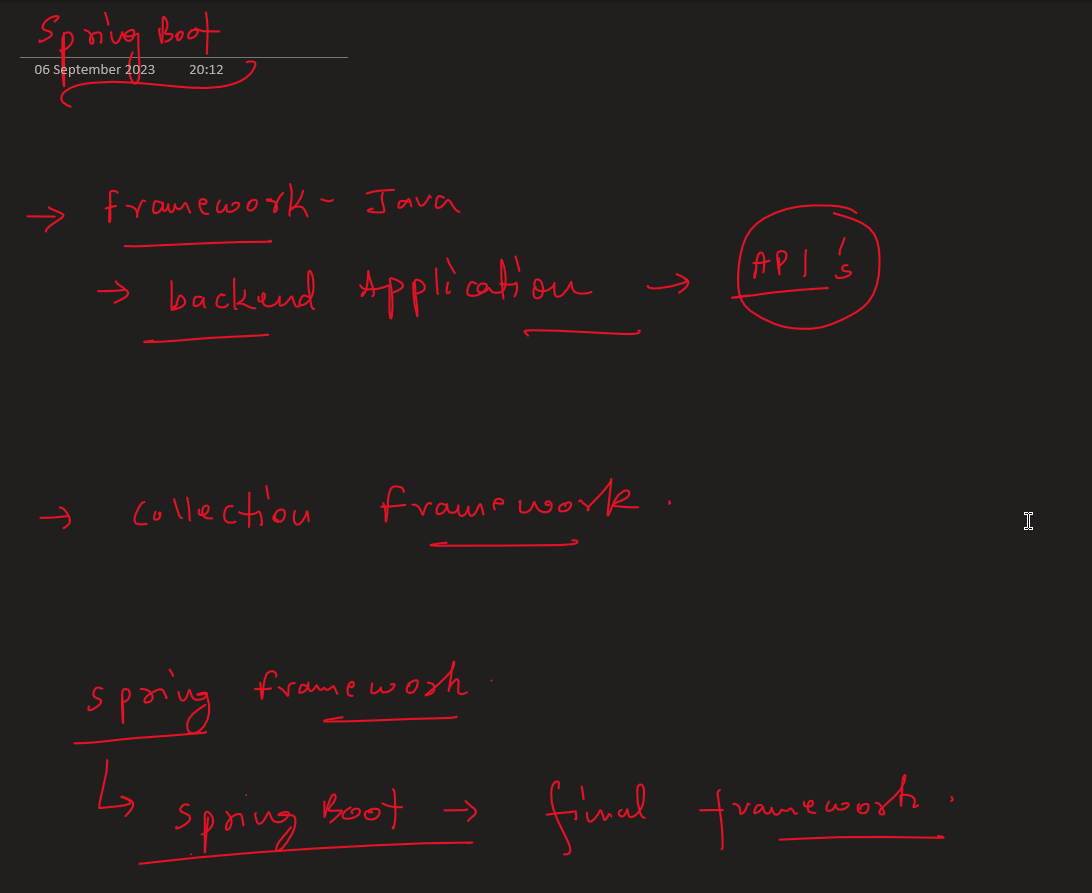 Spring Boot
06 September 2023 20:12
→ framework - Java
→ backend Application → API's
→ Collection framework.
spring framework.
↳ spring Boot → final framework.